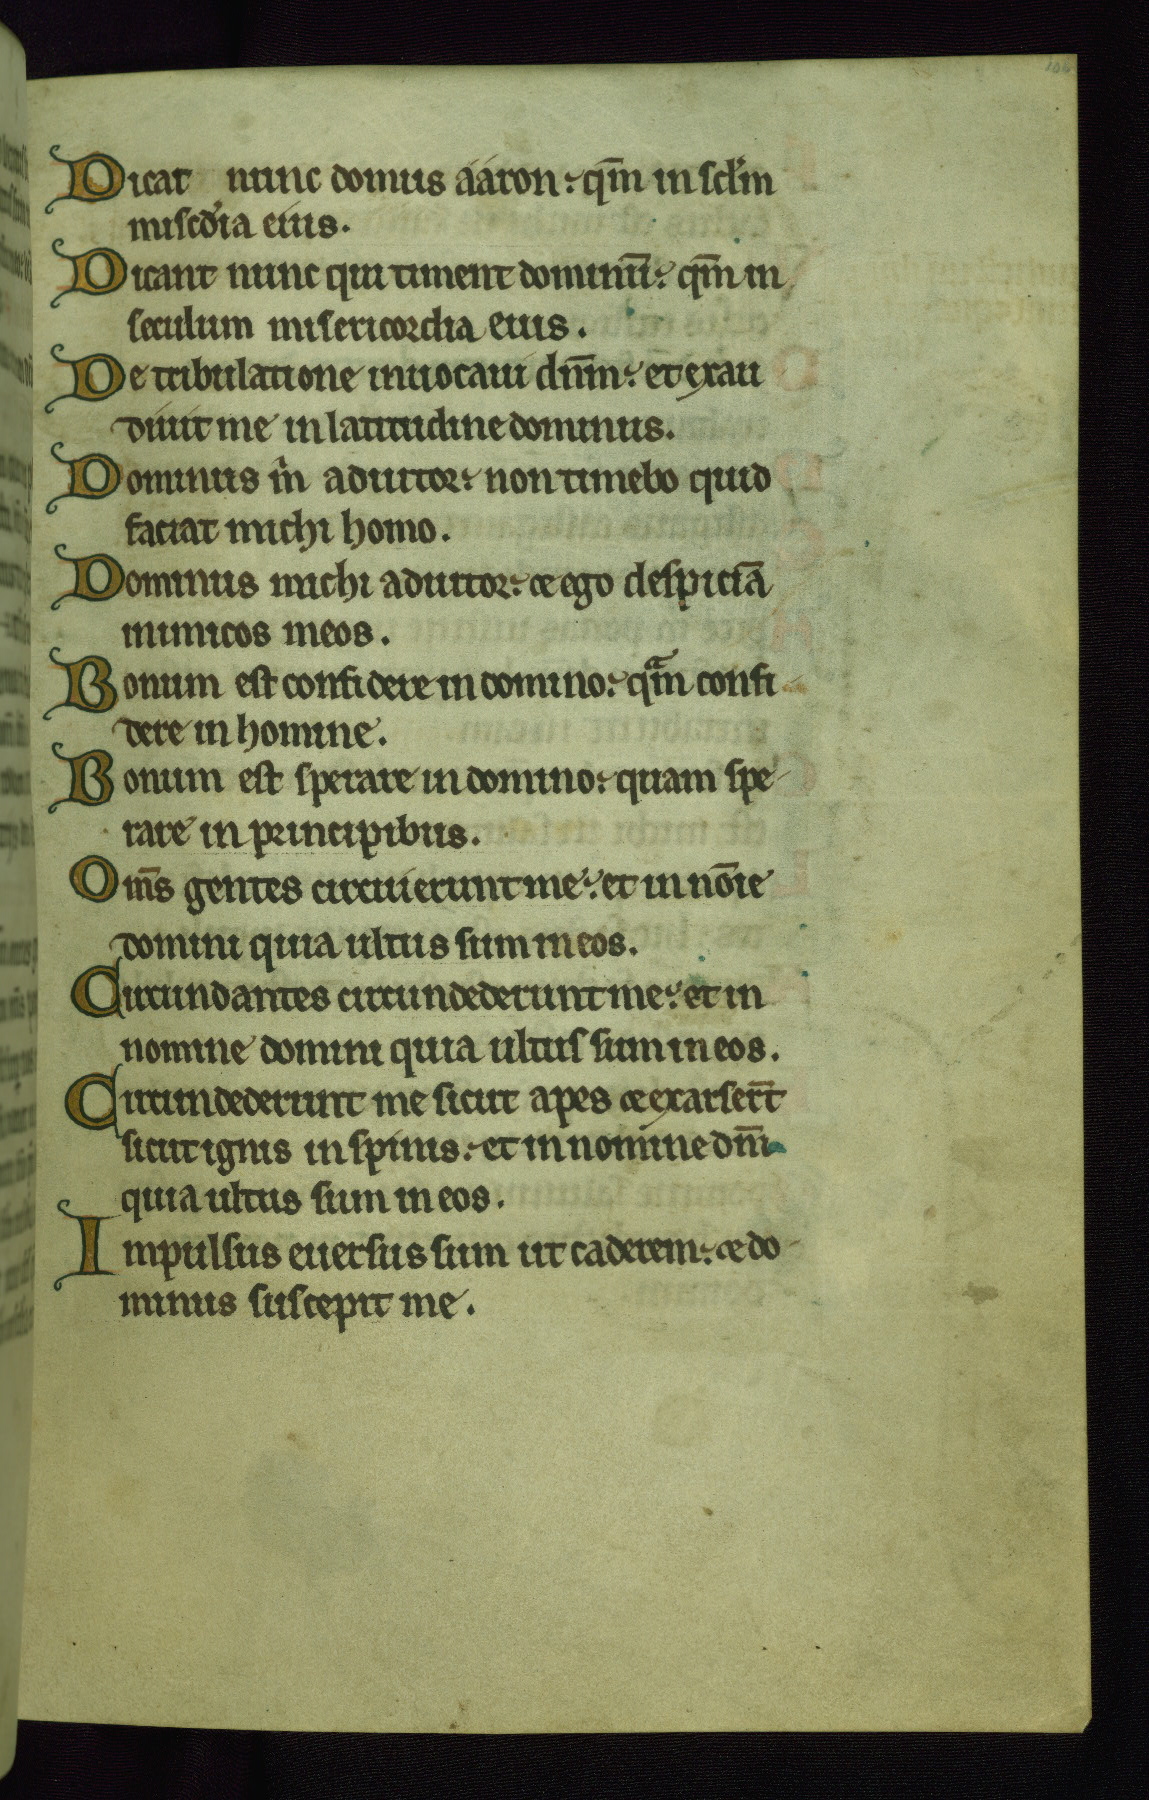 Dicat nunc domus ááron: qm̄ in scl̓m
misc̄dia eius.
Dicant nunc qui timent dominū: qm̄ in
seculum misericordia eius.
De tribulatione inuocaui dn̄m: et exau
diuit me in latitudine dominus.
Dominus m̄ adiutor: non timebo quid
faciat michi homo.
Dominus michi adiutor: & ego despiciā
inimicos meos.
Bonum est confidere in domino: qm̄ confi-
dere in homine.
Bonum est sperare in domino: quam spe-
rare in principibus.
Om̄s gentes circuierunt me: et in noīe
domini quia ultus sum in eos.
Circundantes circundederunt me: et in
nomine domini quia ultus sum in eos.
Circundederunt me sicut apes & exarser̄t
sicut ignis in spinis: et in nomine dn̄i
quia ultus sum in eos.
Impulsus euersus sum ut caderem: & do-
minus suscepit me.